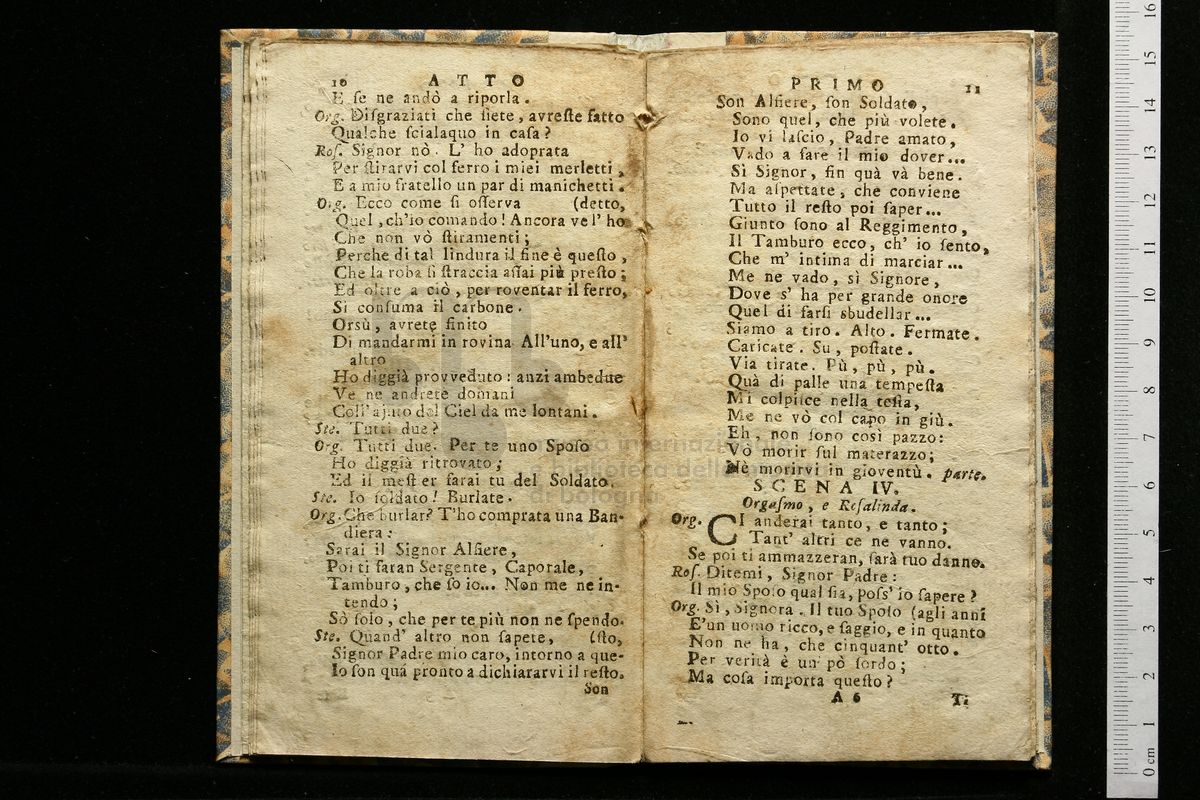 10 ATTO
E se ne andò a riporla.
Org. Disgraziati che siete, avreste fatto
Qualche scialaquo in casa?
Ros. Signor nò. L' ho adoprata
Per stirarvi col ferro i miei merletti,
E a mio fratello un par di manichetti.
Org. Ecco come si osserva (detto,
Quel, ch'io comando! Ancora ve l' ho
Che non vò stiramenti;
Perche di tal lindura il fine è questo,
Che la roba si straccia assai più presto;
Ed oltre a ciò, per roventar il ferro,
Si consuma il carbone.
Orsù, avrete finito
Di mandarmi in rovina All'uno, e all'
altro
Ho diggià provveduto: anzi ambedue
Ve ne andrete domani
Coll'ajuto del Ciel da me lontani.
Ste. Tutti due?
Org. Tutti due. Per te uno Sposo
Ho diggià ritrovato;
Ed il mestier farai tu del Soldato.
Ste. Io soldato! Burlate.
Org. Che burlar? T'ho comprata una Ban-
diera:
Sarai il Signor Alfiere,
Poi ti faran Sergente, Caporale,
Tamburo, che so io... Non me ne in-
tendo;
Sò solo, che per te più non ne spendo.
Ste. Quand' altro non sapete, (sto,
Signor Padre mio caro, intorno a que-
Io son quá pronto a dichiararvi il resto.
Son
PRIMO 11
Son Alfiere, son Soldato,
Sono quel, che più volete.
Io vi lascio, Padre amato,
Vado a fare il mio dover...
Sì Signor, fin quà và bene.
Ma aspettate, che conviene
Tutto il resto poi saper...
Giunto sono al Reggimento,
Il Tamburo ecco, ch' io sento,
Che m' intima di marciar...
Me ne vado, sì Signore,
Dove s' ha per grande onore
Quel di farsi sbudellar...
Siamo a tiro. Alto. Fermate.
Caricate. Su, postate.
Via tirate. Pù, pù, pù.
Quà di palle una tempesta
Mi colpisce nella testa,
Me ne vò col capo in giù.
Eh, non sono così pazzo:
Vò morir sul materazzo;
Nè morirvi in gioventù. parte.
SCENA IV.
Orgasmo, e Rosalinda.
Org. CI anderai tanto, e tanto;
Tant' altri ce ne vanno.
Se poi ti ammazzeran, sarà tuo danno.
Ros. Ditemi, Signor Padre:
Il mio Sposo qual sia, poss' io sapere?
Org. Sì, Signora. Il tuo Sposo (agli anni
E'un uomo ricco, e saggio, e in quanto
Non ne ha, che cinquant' otto.
Per verità è un pò sordo;
Ma cosa importa questo?
A 6 Ti
museo internazionale
e biblioteca della
di bologna
0 cm 1 2 3 4 5 6 7 8 9 10 11 12 13 14 15 16